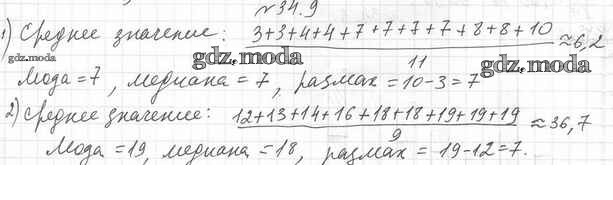 №34.9
1) Среднее значение: 3+3+4+4+7+7+7+7+8+8+10 / 11 ≈ 6,2
gdz.moda gdz.moda gdz.moda
Мода = 7, медиана = 7, размах = 10-3 = 7
2) Среднее значение: 12+13+14+16+18+18+19+19+19 / 9 ≈ 36,7
Мода = 19, медиана = 18, размах = 19-12 = 7.